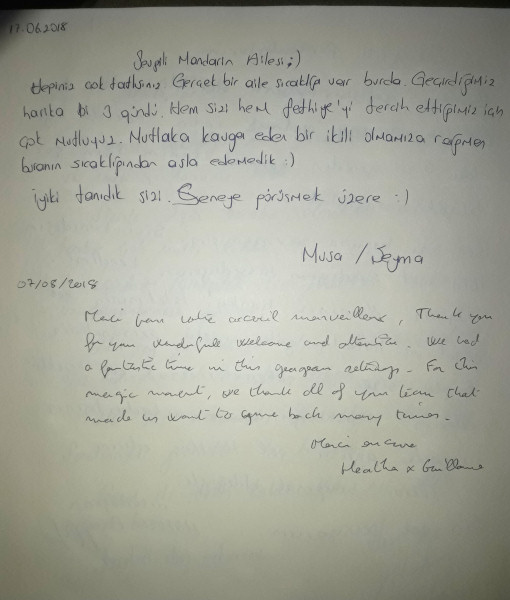 17.06.2018
Sevgili Mandarin Ailesi;)
Hepiniz çok tatlısınız Gerçek bir aile sıcaklığı var burda. Geçirdiğimiz
harika bi 3 gündü. Hem sizi hem fethiye'yi tercih ettiğimiz için
çok mutluyuz. Mutlaka kavga eden bir ikili olmamıza rağmen
buranın sıcaklığından asla edemedik :)
iyiki tanıdık sizi. Seneye görüşmek üzere :)
Musa / Şeyma
07/08/2018
Merci pour votre accueil merveilleux, Thank you
for your wonderfull welcome and attention. We had
a fantastic time in this gorgeous settings. For this
magic moment, we thank all of your team that
made us want to come back many times.
Merci encore
x Guillaume